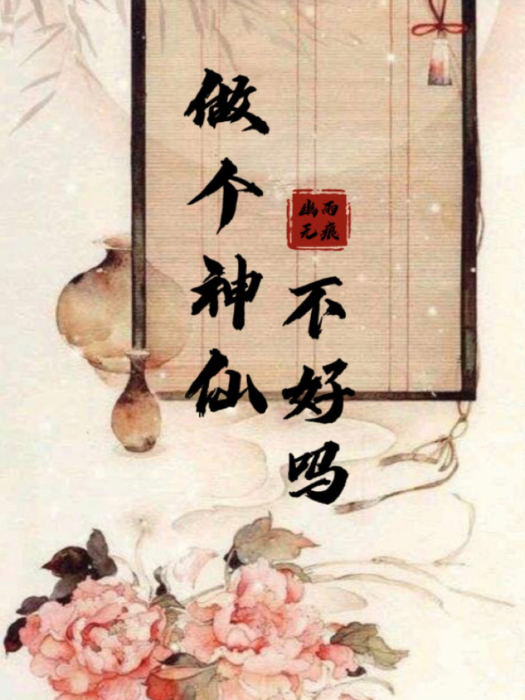 做个神仙
不好吗
幽雨
无痕